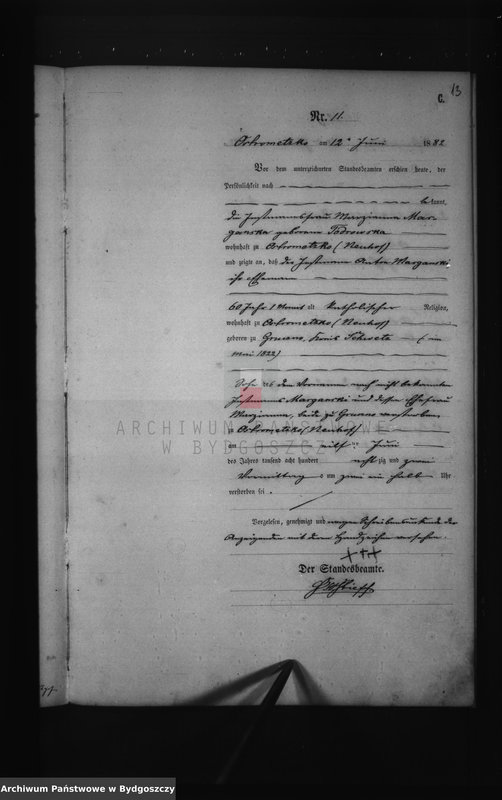 C. 13
Nr. 11.
Ostrometzko am 12ten Juni 1882
Vor dem unterzeichneten Standesbeamten erschien heute, der
Persönlichkeit nach
bekannt,
die Instmannsfrau Marzianna Mar-
ganska geborene
wohnhaft zu Ostrometzko (Neuhof)
und zeigte an, daß der Instmann Anton Marganski
ihr Ehemann
60 Jahr 1 Monat alt katholischer Religion,
wohnhaft zu Ostrometzko (Neuhof)
geboren zu Gruano, Kreis Schwetz (im
Mai 1822)
Sohn des dem Vornamen nach nicht bekannten
Instmanns Marganski und dessen Ehefrau
Marzianna, beide zu Gruano verstorben,
zu Ostrometzko (Neuhof)
am elften Juni
des Jahres tausend acht hundert achtzig und zwei
Vormittags um zwei ein halb Uhr
verstorben sei.
Vorgelesen, genehmigt und wegen Schreibensunkunde der
Anzeigenden mit deren Handzeichen versehen.
+++
Der Standesbeamte.
ARCHIWUM PAŃSTWOWE
W BYDGOSZCZY
Archiwum Państwowe w Bydgoszczy